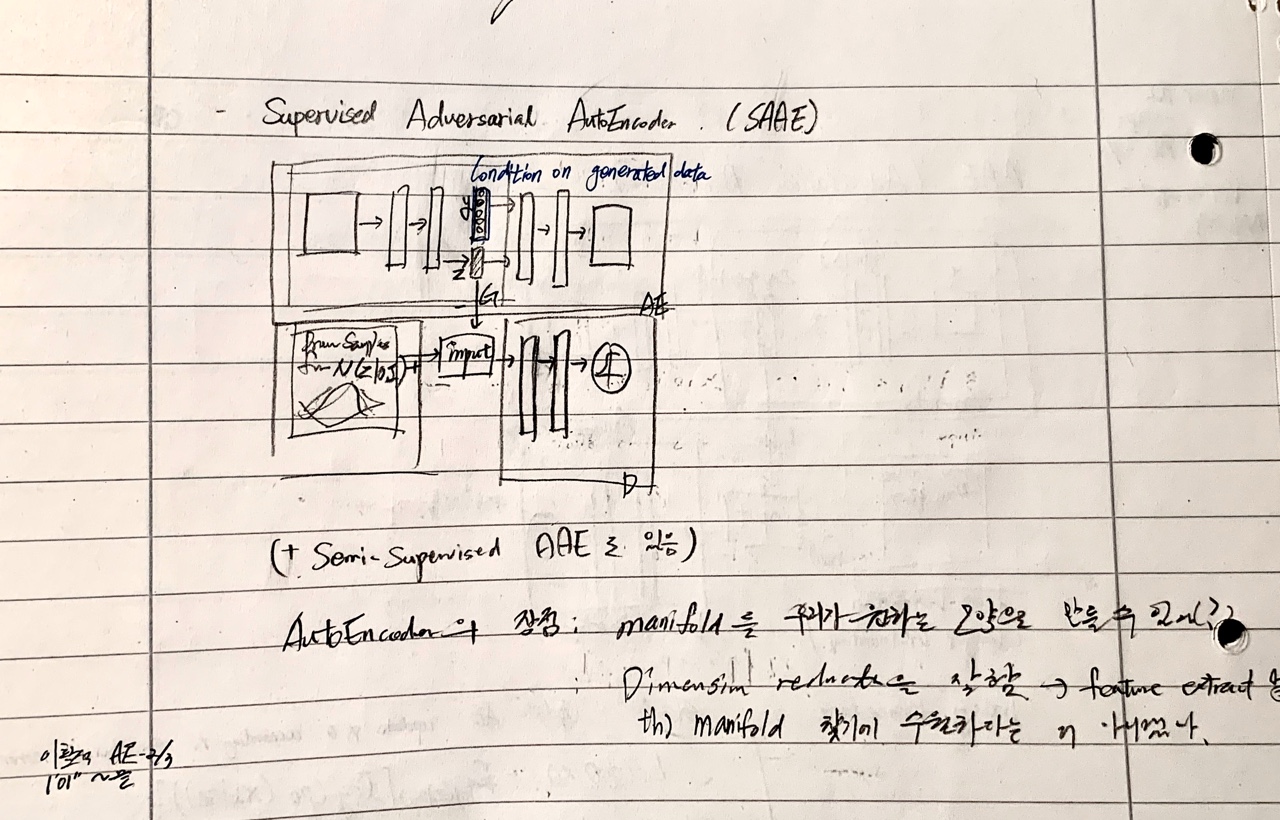 - Supervised Adversarial AutoEncoder. (SAAE)
Condition on generated data
y
z
G
AE
Draw Samples
from N(z|0,I)
+
input
D
(+ Semi-Supervised AAE도 있음)
AutoEncoder의 장점: manifold를 우리가 원하는 모양으로 만들 수 있어(?)
: Dimension reduction을 잘함 → feature extract
th) manifold 찾기에 수월하다는 게 아니었나.
이활석 AE-2/3
1'01" ~